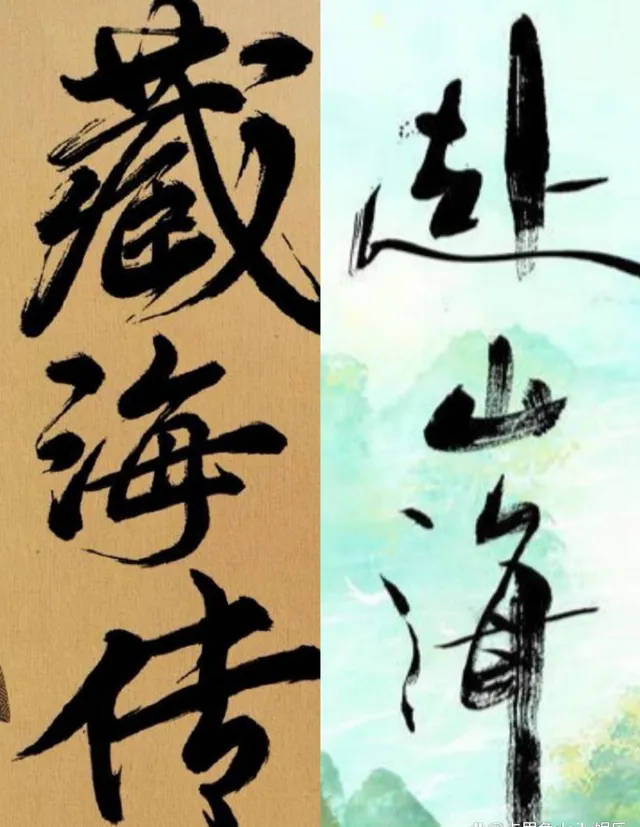 藏海传
赴山海